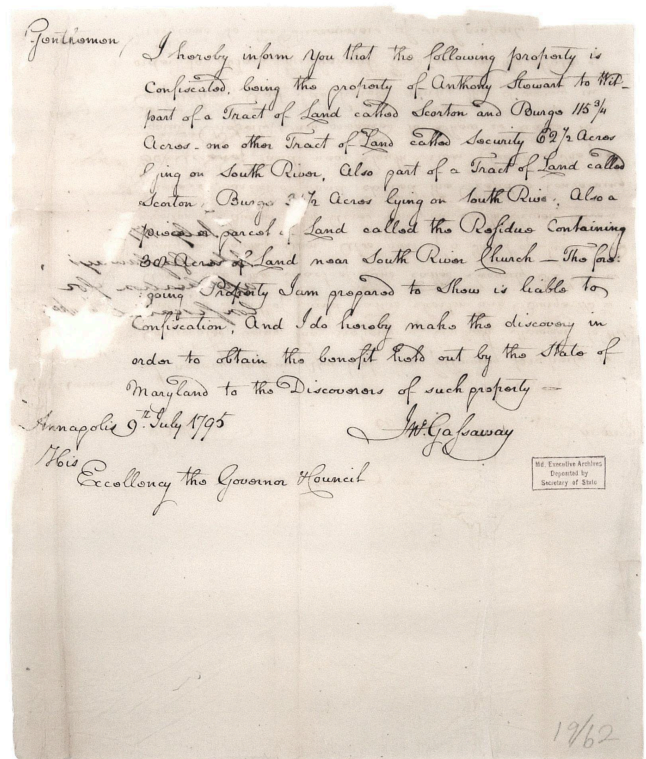 Gentlemen,
I hereby inform You that the following property is
Confiscated, being the property of Anthony Stewart to Wit_
part of a Tract of Land called Scorton and Burgo 115 3/4
Acres - one other Tract of Land called Security 62 1/2 Acres
lying on South River, Also part of a Tract of Land called
Scorton, Burgo 1/2 Acres lying on South River. Also a
piece or parcel of Land called the Residue Containing
30 Acres of Land near South River Church — The fore:
:going Property I am prepared to Show is liable to
Confiscation, And I do hereby make the discovery in
order to obtain the benefit held out by the State of
Maryland to the Discoverers of such property —
Annapolis 9th July 1795
Jn° Gassaway
His
Excellency the Governor & Council
Md. Executive Archives
Deposited by
Secretary of State
19/62